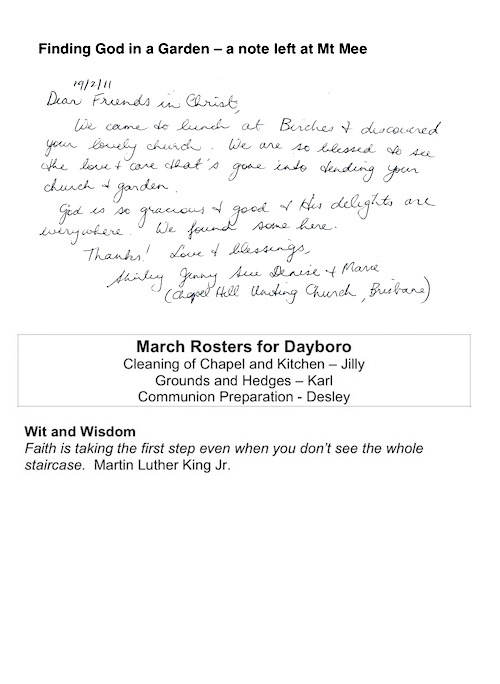 Finding God in a Garden – a note left at Mt Mee
19/2/11
Dear Friends in Christ,
We came to lunch at Birches & discovered
your lovely church. We are so blessed to see
the love & care that's gone into tending your
church & garden.
God is so gracious & good & His delights are
everywhere. We found some here.
Thanks! Love & blessings,
Shirley Jenny Sue Denise & Marie
(Chapel Hill Uniting Church, Brisbane)
March Rosters for Dayboro
Cleaning of Chapel and Kitchen – Jilly
Grounds and Hedges – Karl
Communion Preparation - Desley
Wit and Wisdom
Faith is taking the first step even when you don't see the whole
staircase. Martin Luther King Jr.